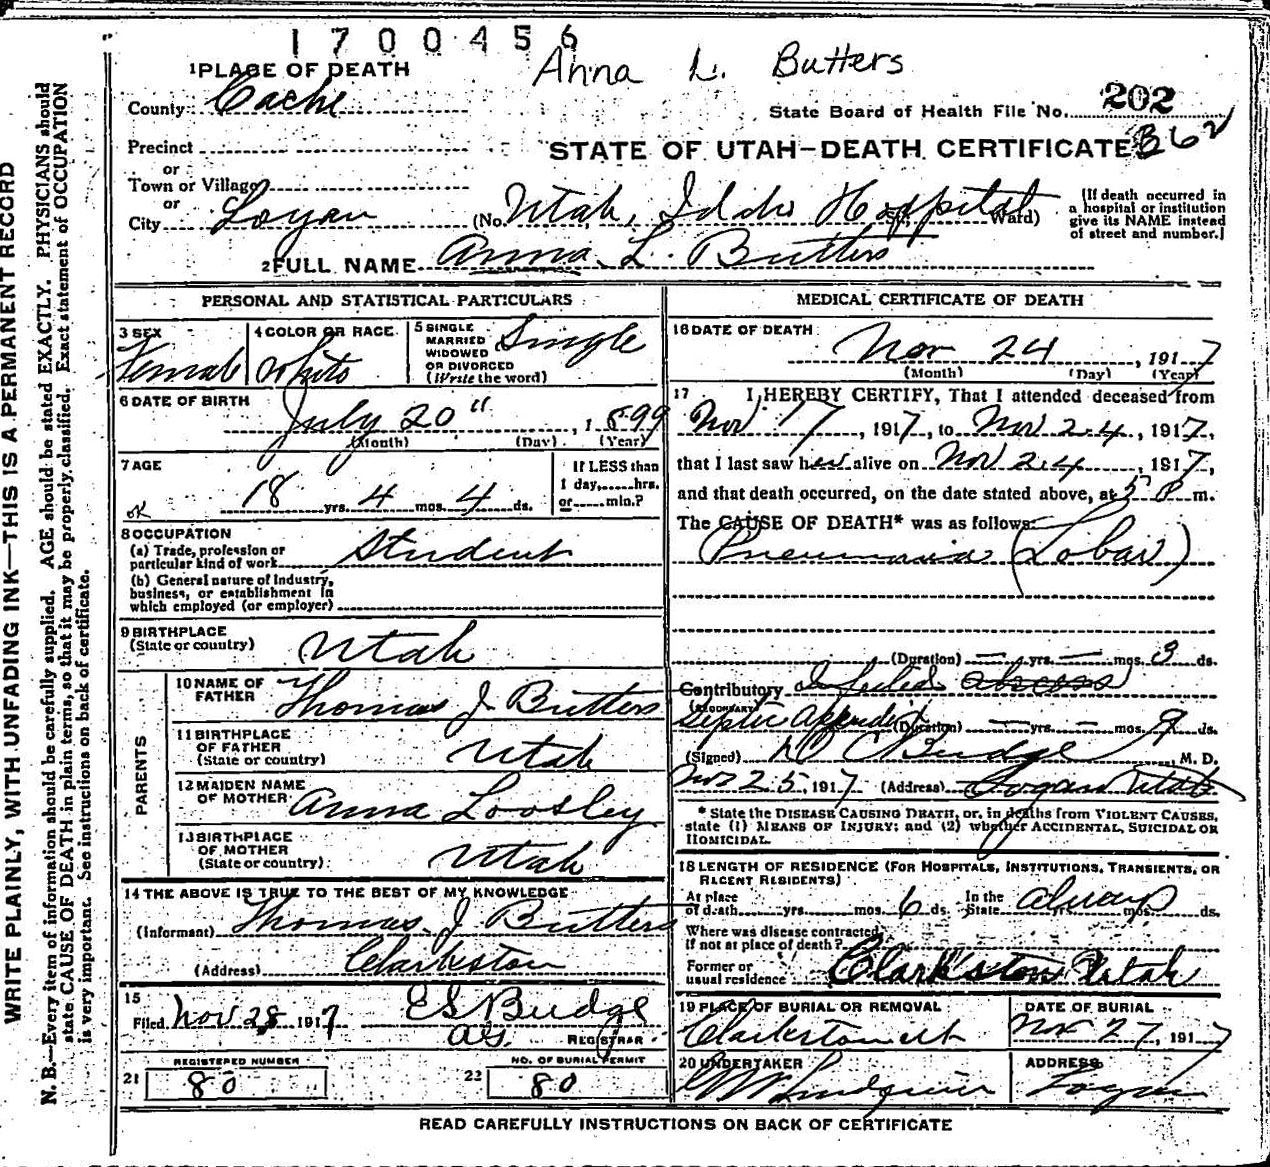 1700456
Anna L. Butters
1 PLACE OF DEATH
County Cache
State Board of Health File No. 202
B62
Precinct
or
Town or Village
or
City Logan
STATE OF UTAH—DEATH CERTIFICATE
(No. Utah, Idaho Hospital St., Ward)
[If death occurred in a hospital or institution give its NAME instead of street and number.]
2 FULL NAME Anna L. Butters
PERSONAL AND STATISTICAL PARTICULARS
3 SEX Female
4 COLOR OR RACE White
5 SINGLE MARRIED WIDOWED OR DIVORCED (Write the word) Single
6 DATE OF BIRTH July 20", 1899
(Month) (Day) (Year)
7 AGE 18 yrs. 4 mos. 4 ds.
If LESS than 1 day, hrs. or min.?
OK
8 OCCUPATION
(a) Trade, profession or particular kind of work Student
(b) General nature of industry, business, or establishment in which employed (or employer)
9 BIRTHPLACE (State or country) Utah
PARENTS
10 NAME OF FATHER Thomas J Butters
11 BIRTHPLACE OF FATHER (State or country) Utah
12 MAIDEN NAME OF MOTHER Anna Loosley
13 BIRTHPLACE OF MOTHER (State or country) Utah
14 THE ABOVE IS TRUE TO THE BEST OF MY KNOWLEDGE
(Informant) Thomas J Butters
(Address) Clarkston
15 Filed Nov 28, 1917 ES Budge
REGISTRAR
REGISTERED NUMBER
21 80
NO. OF BURIAL PERMIT
22 80
MEDICAL CERTIFICATE OF DEATH
16 DATE OF DEATH Nov 24, 1917
(Month) (Day) (Year)
17 I HEREBY CERTIFY, That I attended deceased from
Nov 17, 1917, to Nov 24, 1917,
that I last saw her alive on Nov 24, 1917,
and that death occurred, on the date stated above, at 5 P m.
The CAUSE OF DEATH* was as follows:
Pneumonia (Lobar)
(Duration) — yrs. — mos. 3 ds.
Contributory Infected abscess
(SECONDARY)
Septic Appendix (Duration) — yrs. — mos. 9 ds.
(Signed) D C Budge, M. D.
Nov 25, 1917 (Address) Logan Utah
* State the DISEASE CAUSING DEATH, or, in deaths from VIOLENT CAUSES, state (1) MEANS OF INJURY; and (2) whether ACCIDENTAL, SUICIDAL OR HOMICIDAL.
18 LENGTH OF RESIDENCE (FOR HOSPITALS, INSTITUTIONS, TRANSIENTS, OR RECENT RESIDENTS)
At place of death yrs. mos. 6 ds. In the State always yrs. mos. ds.
Where was disease contracted, if not at place of death?
Former or usual residence Clarkston Utah
19 PLACE OF BURIAL OR REMOVAL Clarkston ut
DATE OF BURIAL Nov 27, 1917
20 UNDERTAKER
ADDRESS Logan
READ CAREFULLY INSTRUCTIONS ON BACK OF CERTIFICATE
WRITE PLAINLY, WITH UNFADING INK—THIS IS A PERMANENT RECORD
N. B.—Every item of information should be carefully supplied. AGE should be stated EXACTLY. PHYSICIANS should
state CAUSE OF DEATH in plain terms, so that it may be properly classified. Exact statement of OCCUPATION
is very important. See instructions on back of certificate.